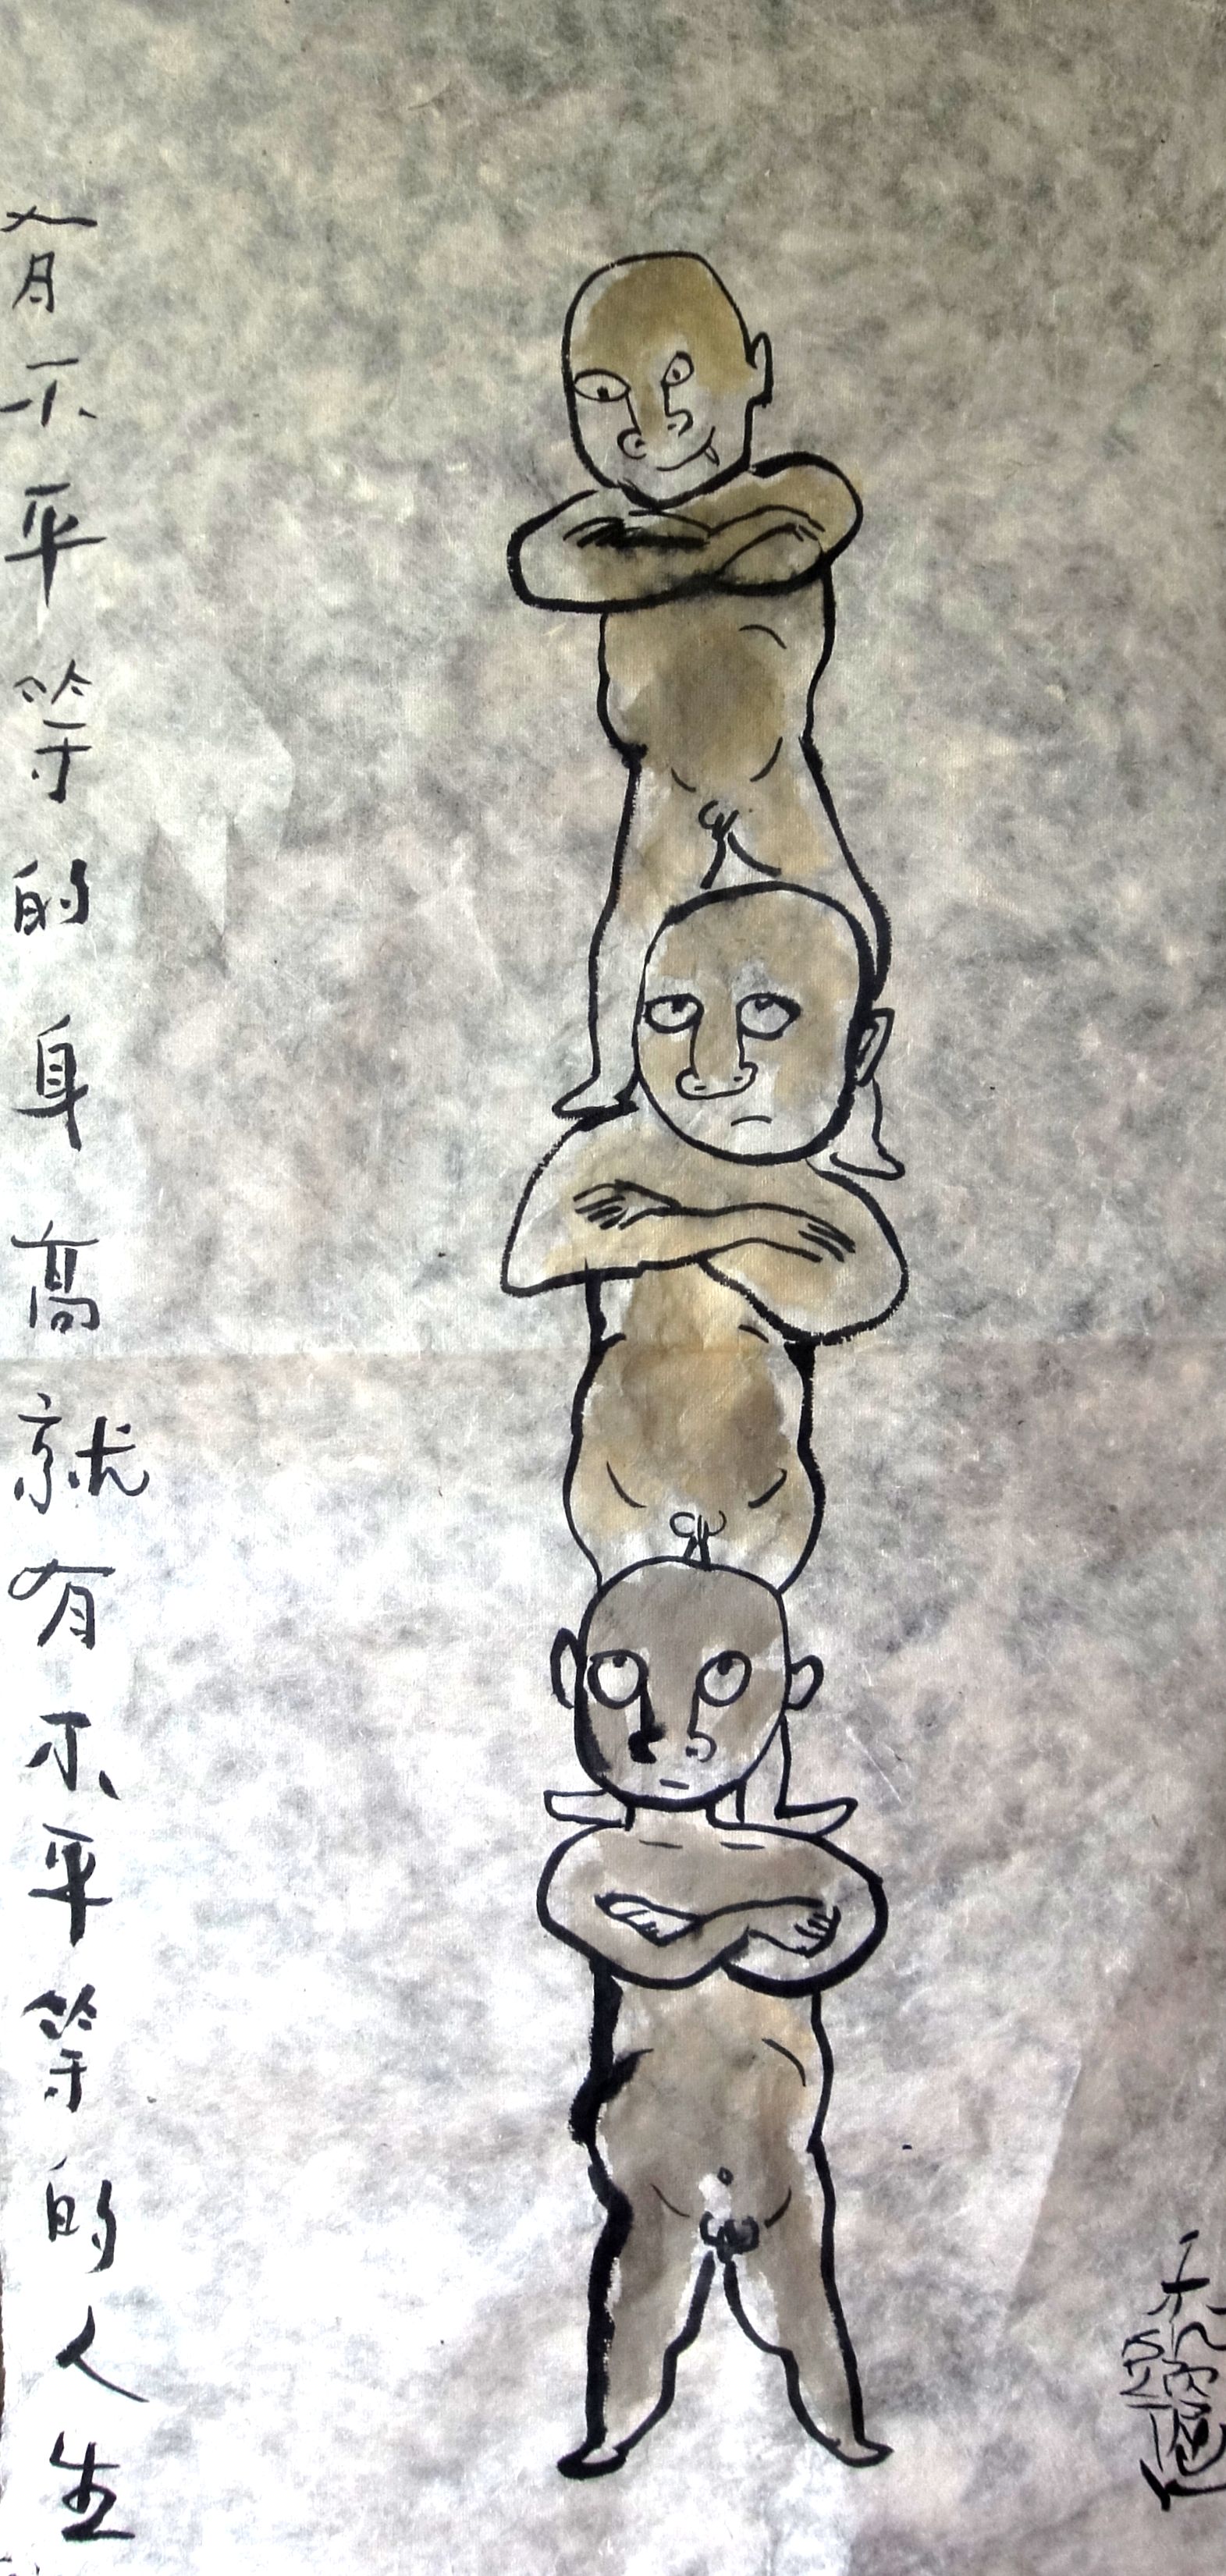 有不平等的身高就有不平等的人生